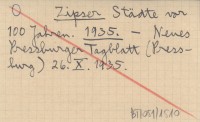 Zipser Städte vor
100 Jahren. 1935. – Neues
Pressburger Tagblatt (Press-
burg) 26. X. 1935.